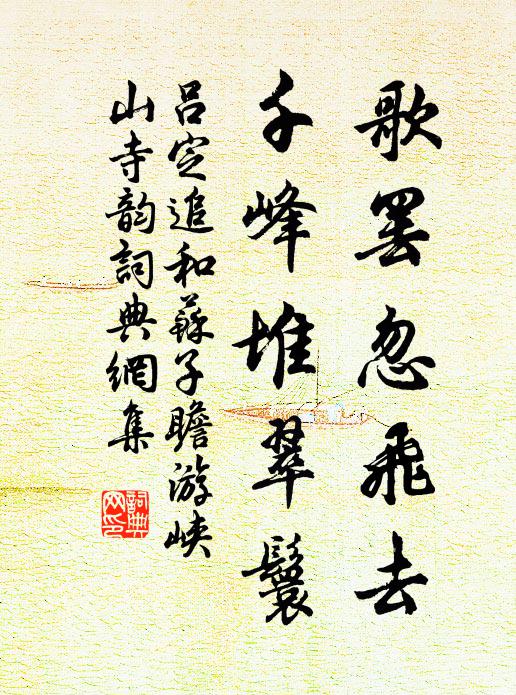 歌罢忽飛去
千峰堆翠鬟
吕定追和蘇子瞻游峡
山寺韵詞典網集
詞典网印